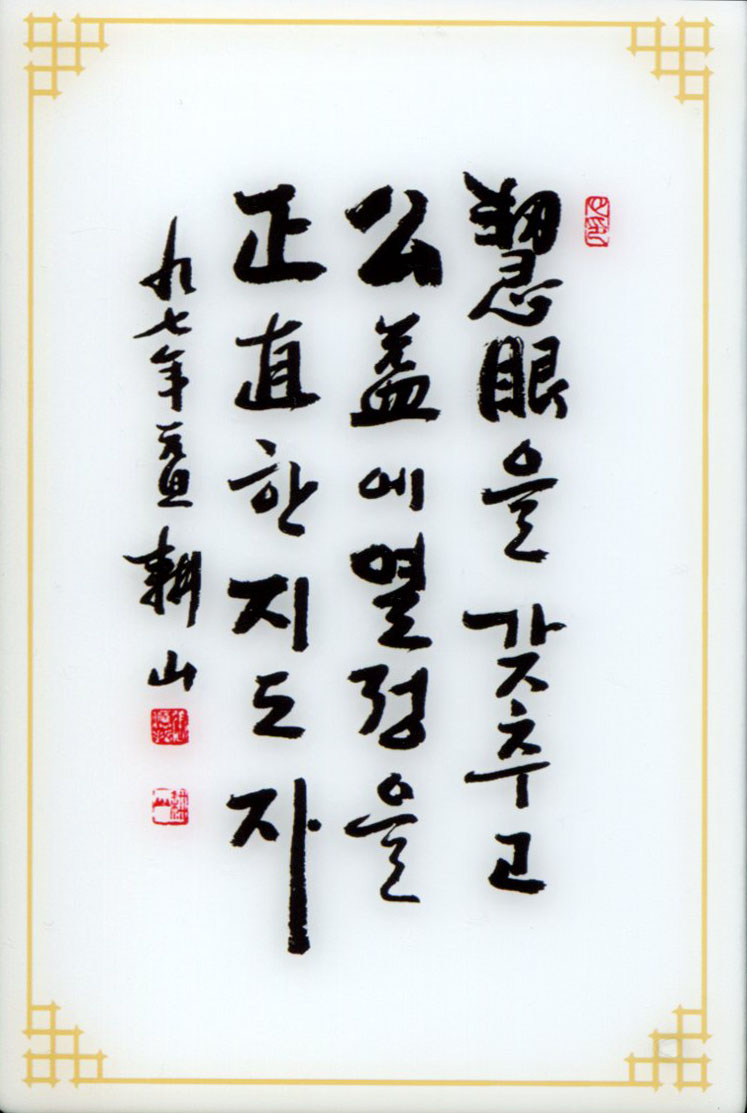 慧眼을 갖추고
公益에 열정을
正直한 지도자
九七年 耕山